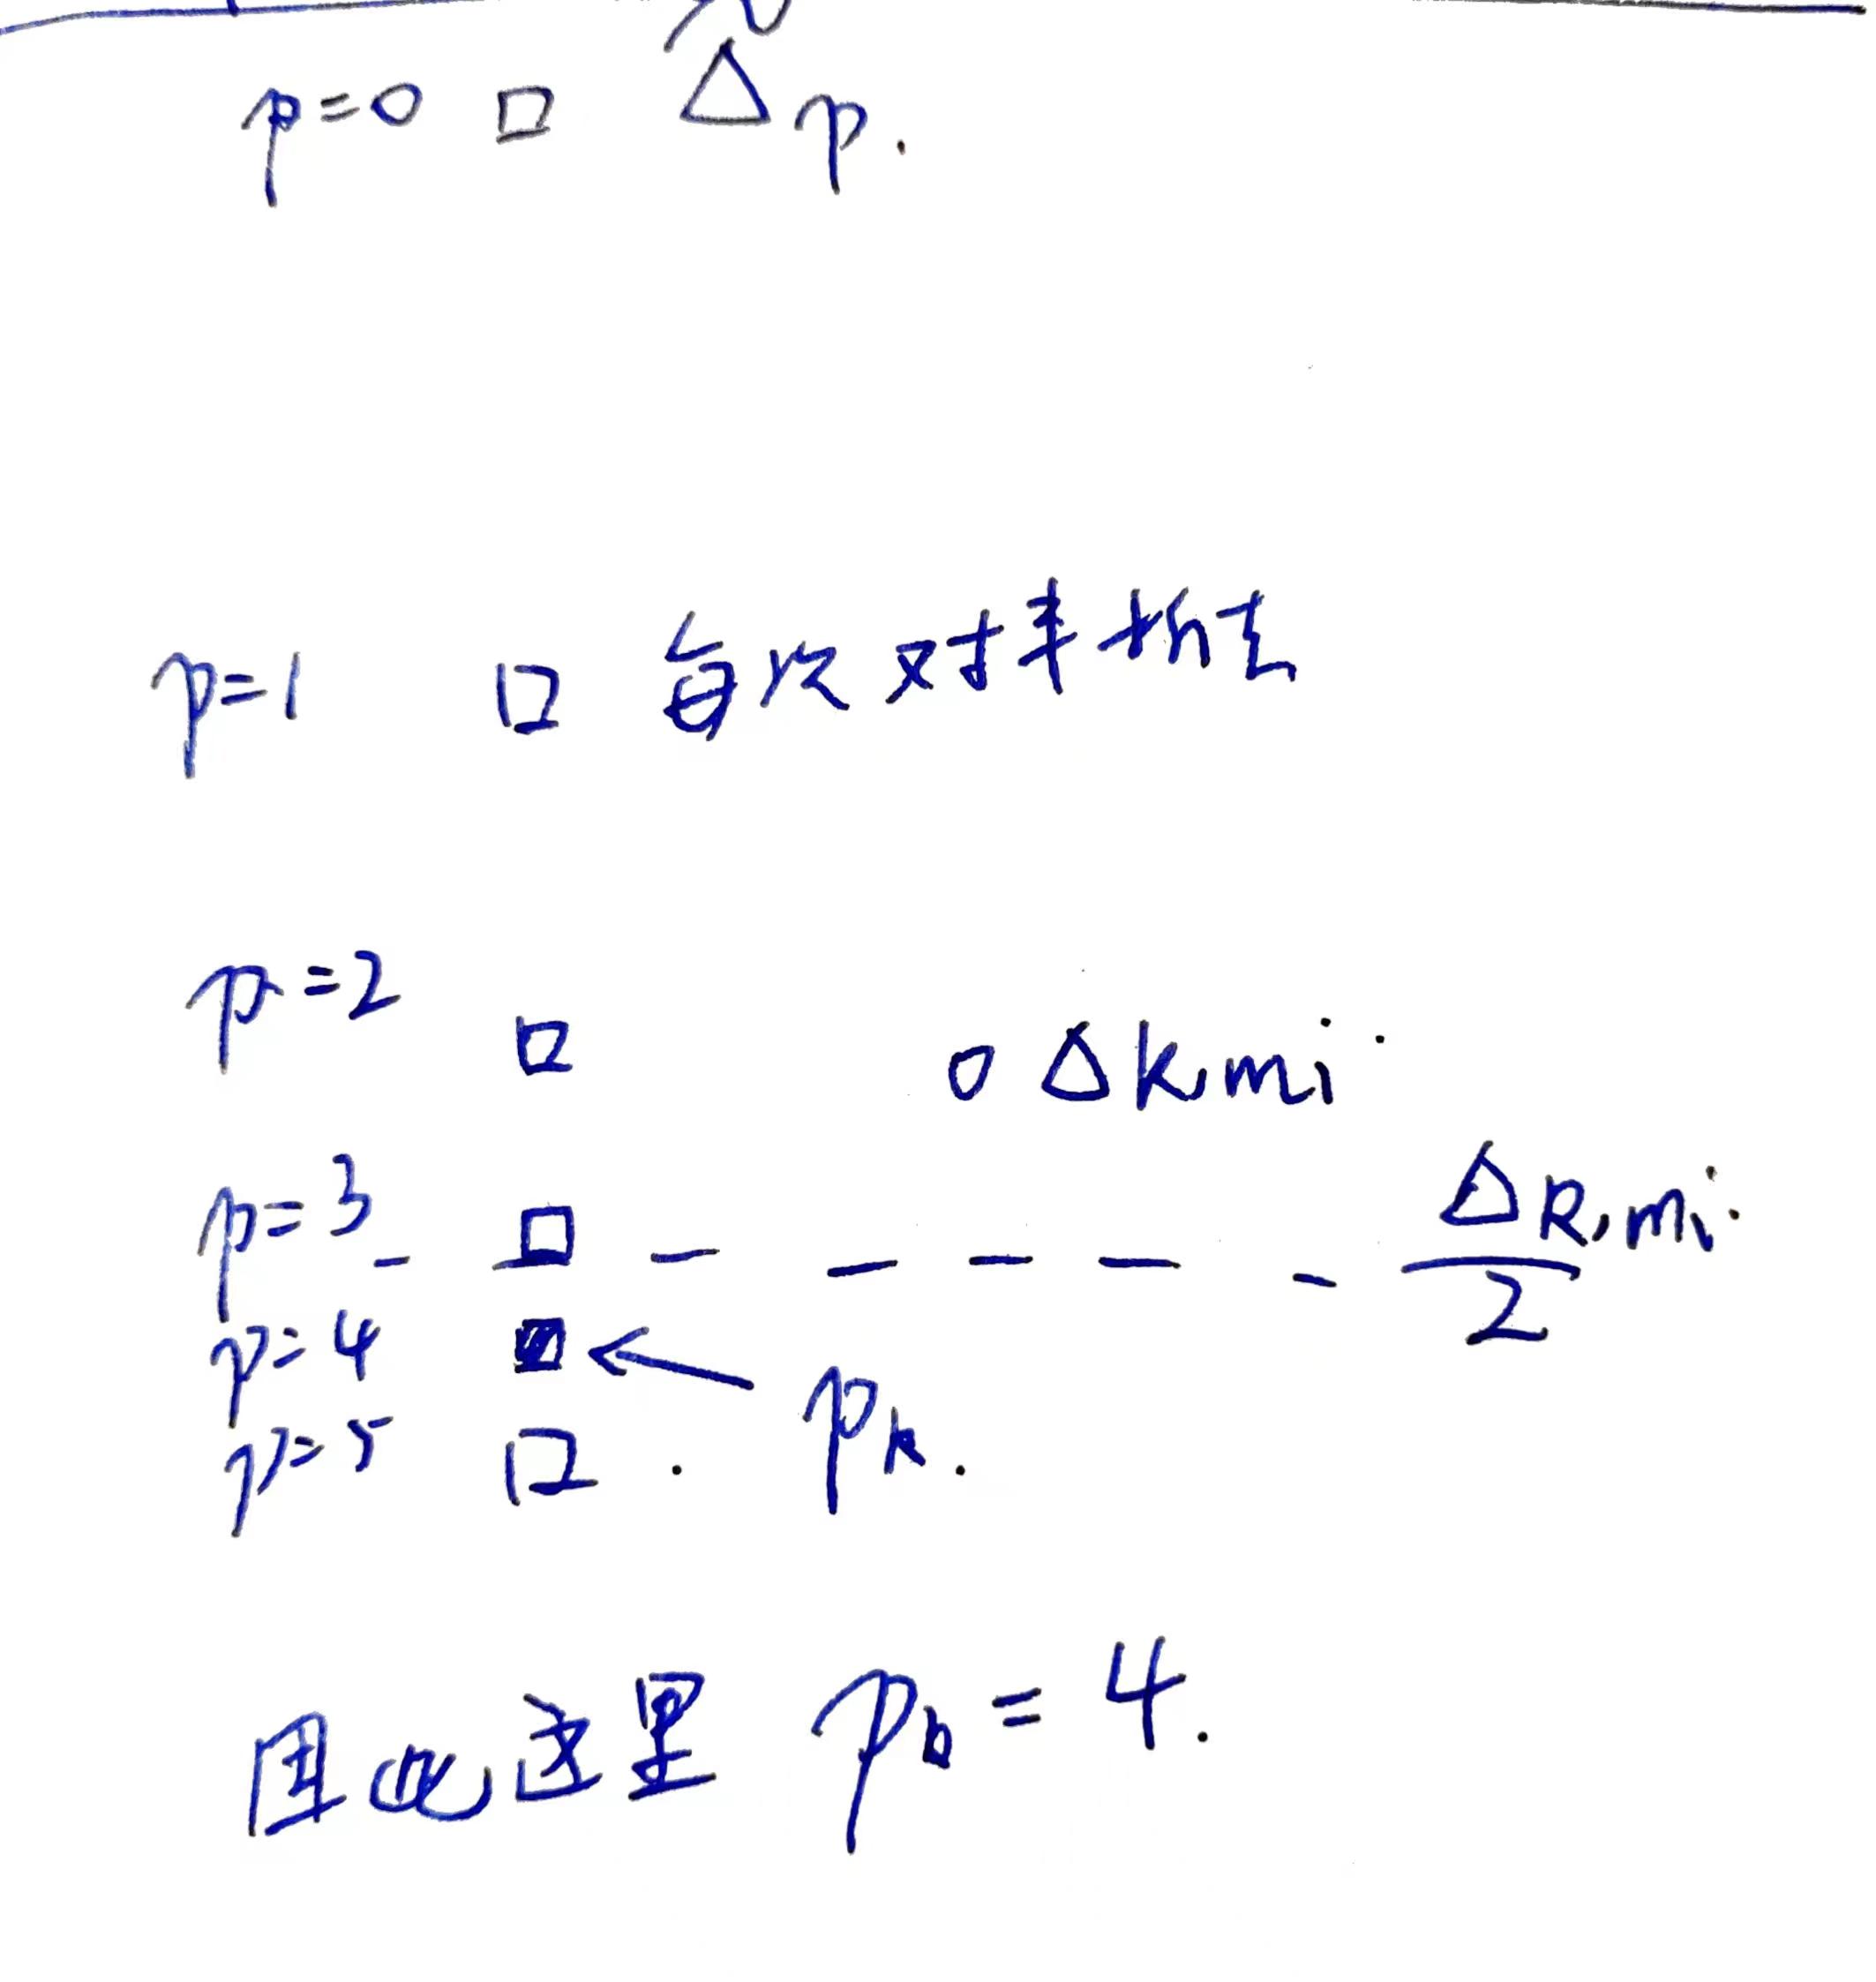 p=0 □ Δp.
p=1 □ 每次对半折去
p=2 □ o Δk,mi
p=3 - □ - - - - - Δk,mi / 2
p=4 ■ ← pk.
p=5 □ .
因此这里 pk = 4.